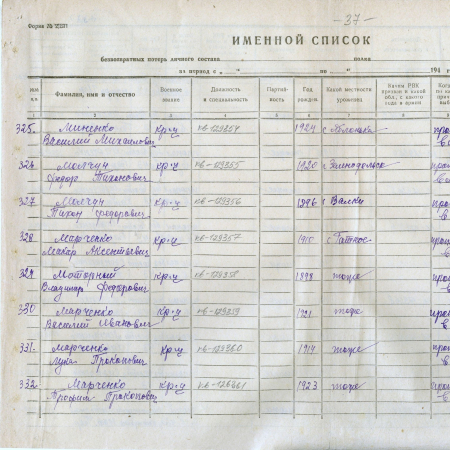 -37-
Форма № 2/БП
ИМЕННОЙ СПИСОК
безвозвратных потерь личного состава полка
за период с „ “ по „ “ 194 г
№№ п.п. Фамилия, имя и отчество Военное звание Должность и специальность Партийность Год рожден. Какой местности уроженец Каким РВК призван и какой обл., с какого года в армии
1 2 3 4 5 6 7 8
325. Миненко Василий Михайлович кр-ц кв-129354 1924 с Яблоньки
326 Молчун Федор Тихонович кр-ц кв-129355 1920
327 Молчун Тихон Федорович кр-ц кв-129356 1896 с Валки
328 Марченко Макар Аксентьевич кр-ц кв-129357 1910
329 Моторный Владимир Федорович кр-ц кв-129358 1898 тоже
330 Марченко Василий Иванович кр-ц кв-129359 1921 тоже
331. Марченко Лука Прокопович кр-ц кв-129360 1914 тоже
332. Марченко Трофим Прокопович кр-ц кв-129361 1923 тоже